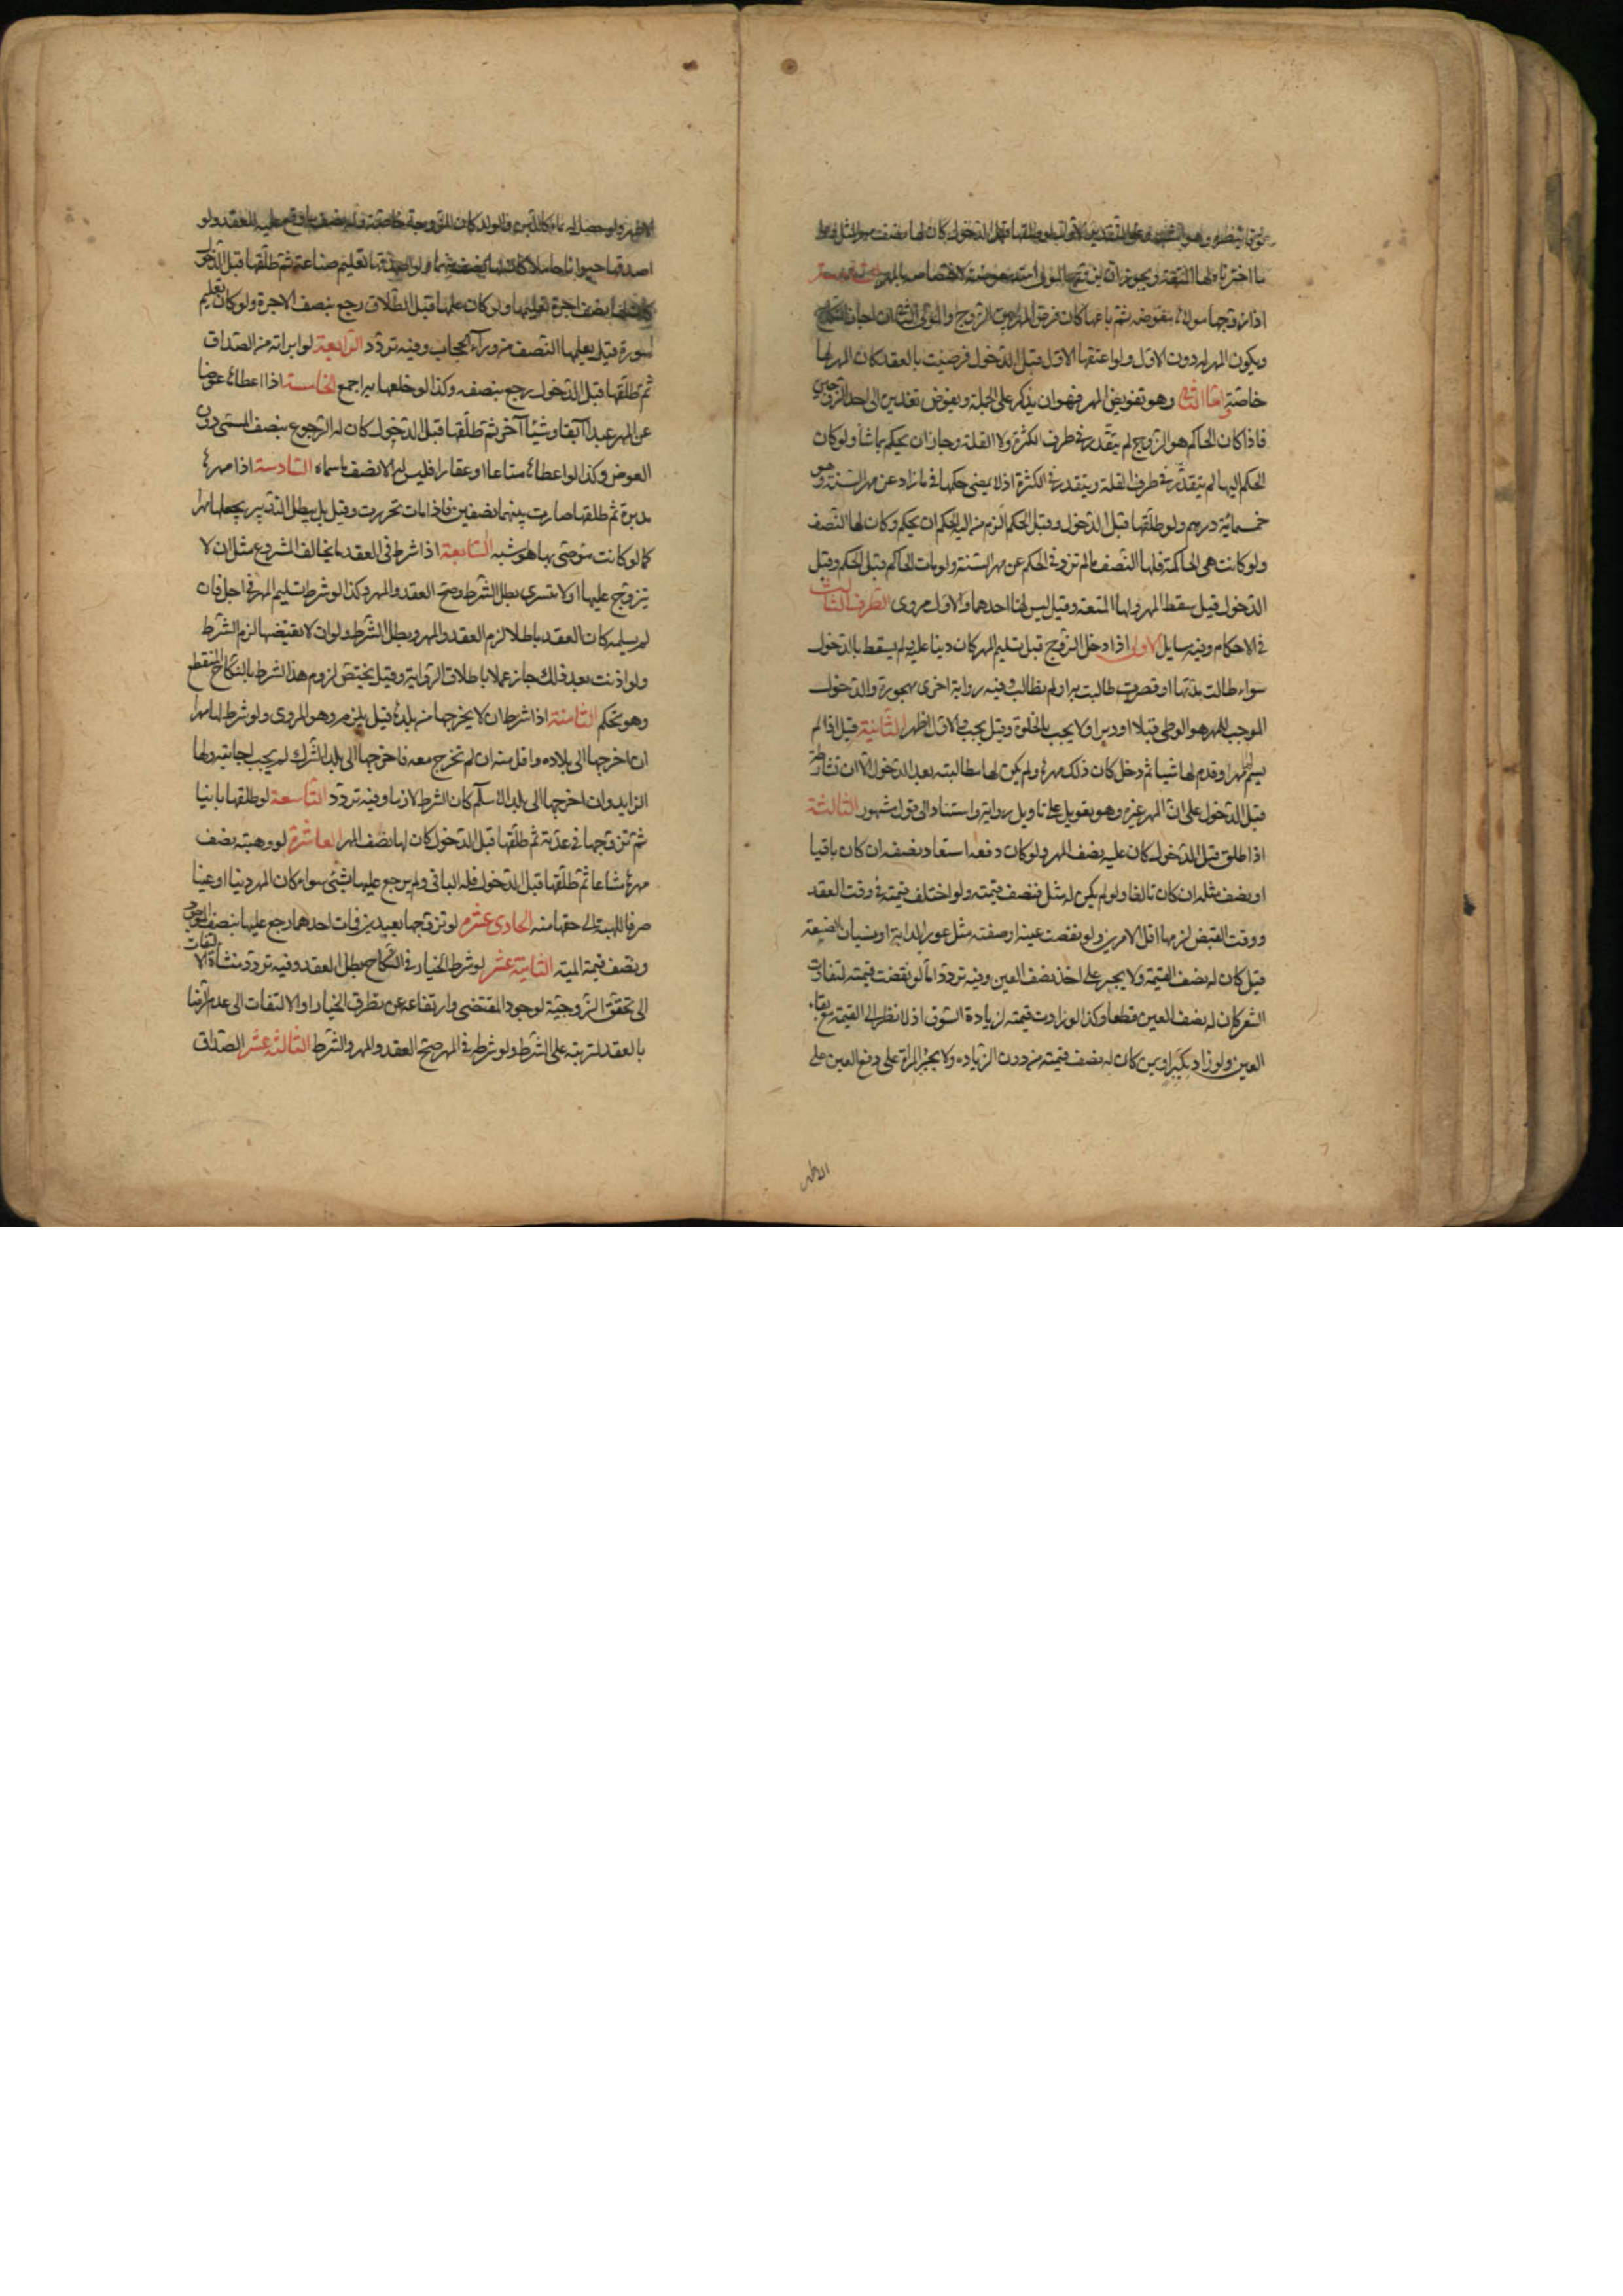 موقعا شطره وهو اشبه وعلى التقدير الاول لو طلقها قبل الدخول كان لها نصف مهر المثل وعلى
ما اخترناه لها المتعة ويجوز ان يزوج المولى امته مفوضة لاختصاصه بالمهر الخامسة عشر
اذا زوجها مولاه مفوضه ثم باعها كان فرض المهر بين الزوج والمولى الثانى ان اجاز النكاح
ويكون المهر له دون الاول ولو اعتقها الاول قبل الدخول فرضيت بالعقد كان المهر لها
خاصة واما الثانى وهو تفويض المهر فهو ان يذكر على الجملة ويفوض تقديره الى احد الزوجين
فاذا كان الحاكم هو الزوج لم يتقدر فى طرف الكثرة ولا القلة وجاز ان يحكم بما شاء ولو كان
الحكم اليها لم يتقدر فى طرف القلة ويتقدر فى الكثرة اذ لا يمضى حكمها فى ما زاد عن مهر السنة وهو
خمسمائة درهم ولو طلقها قبل الدخول وقبل الحكم الزم من اليه الحكم ان يحكم وكان لها النصف
ولو كانت هى الحاكمة فلها النصف ما لم تزد فى الحكم عن مهر السنة ولو مات الحاكم قبل الحكم وقبل
الدخول قيل سقط المهر ولها المتعة وقيل ليس لها احدهما والاول مروى الطرف الثالث
فى الاحكام وفيه مسايل الاولى اذا دخل الزوج قبل تسليم المهر كان دينا عليه لم يسقط بالدخول
سواء طالت مدتها او قصرت طالبت به او لم تطالب وفيه رواية اخرى مهجورة والدخول
الموجب للمهر هو الوطى قبلا او دبرا ولا يجب بالخلوة وقيل يجب والاول اظهر الثانية قيل اذا لم
يسم لها مهرا وقدم لها شيا ثم دخل كان ذلك مهرها ولم يكن لها مطالبته بعد الدخول الا ان تشارطه
قبل الدخول على ان المهر غيره وهو تعويل على تاويل رواية واستناد الى قول مشهور الثالثة
اذا طلق قبل الدخول كان عليه نصف المهر ولو كان دفعه استعاد نصفه ان كان باقيا
او نصف مثله ان كان تالفا ولو لم يكن له مثل فنصف قيمته ولو اختلف قيمته فى وقت العقد
ووقت القبض لزمها اقل الامرين ولو نقصت عينه او صفته مثل عور الدابة او نسيان الصنعة
قيل كان له نصف القيمة ولا يجبر على اخذ نصف العين وفيه تردد اما لو نقصت قيمته لتفاوت
السعر كان له نصف العين قطعا وكذا لو زادت قيمته لزيادة السوق اذ لا نظر الى القيمة مع بقاء
العين ولو زاد بكبر او سمن كان له نصف قيمته من دون الزياده ولا يجبر المراة على دفع العين على
الاظهر
الاظهر ولو حصل له نماء كاللبن والولد كان للزوجة خاصة وله نصف ما وقع عليه العقد ولو
اصدقها حيوانا حاملا كان له النصف منهما ولو اصدقها تعليم صناعة ثم طلقها قبل الدخول
كان لها نصف اجرة تعليمها ولو كان علمها قبل الطلاق رجع بنصف الاجرة ولو كان تعليم
سورة قيل يعلمها النصف من وراء الحجاب وفيه تردد الرابعة لو ابراته من الصداق
ثم طلقها قبل الدخول رجع بنصفه وكذا لو خلعها به اجمع الخامسة اذا اعطاها عوضا
عن المهر عبدا آبقا وشيئا آخر ثم طلقها قبل الدخول كان له الرجوع بنصف المسمى دون
العوض وكذا لو اعطاها متاعا او عقارا فليس له الا نصف ما سماه السادسة اذا مهرها
مدبرة ثم طلقها صارت بينهما نصفين فاذا مات تحررت وقيل بل يبطل التدبير بجعلها مهرا
كما لو كانت موصى بها وهو اشبه السابعة اذا شرط فى العقد ما يخالف المشروع مثل ان لا
يتزوج عليها او لا يتسرى بطل الشرط وصح العقد والمهر وكذا لو شرط تسليم المهر فى اجل فان
لم يسلمه كان العقد باطلا لزم العقد والمهر وبطل الشرط ولو ان لا يقتضها لزم الشرط
ولو اذنت بعد ذلك جاز عملا باطلاق الرواية وقيل يختص لزوم هذا الشرط بالنكاح المنقطع
وهو تحكم الثامنة اذا شرط ان لا يخرجها من بلدها قيل يلزم وهو المروى ولو شرط لها مهرا
ان اخرجها الى بلاده واقل منه ان لم تخرج معه فاخرجها الى بلد الشرك لم يجب اجابته ولها
الزايد وان اخرجها الى بلد الاسلام كان الشرط لازما وفيه تردد التاسعة لو طلقها باينا
ثم تزوجها فى عدته ثم طلقها قبل الدخول كان لها نصف المهر العاشرة لو وهبته نصف
مهرها مشاعا ثم طلقها قبل الدخول فله الباقى ولم يرجع عليها بشئ سواء كان المهر دينا او عينا
صرفا للهبة الى حقها منه الحادى عشرة لو تزوجها بعبدين فمات احدهما رجع عليها بنصف الموجود
ونصف قيمة الميته الثانية عشر لو شرط الخيار فى النكاح بطل العقد وفيه تردد منشاؤه الالتفات
الى تحقق الزوجية لوجود المقتضى وارتفاعه عن تطرق الخيار او الالتفات الى عدم الرضا
بالعقد لترتبه على الشرط ولو شرطه فى المهر صح العقد والمهر والشرط الثالثة عشر الصداق